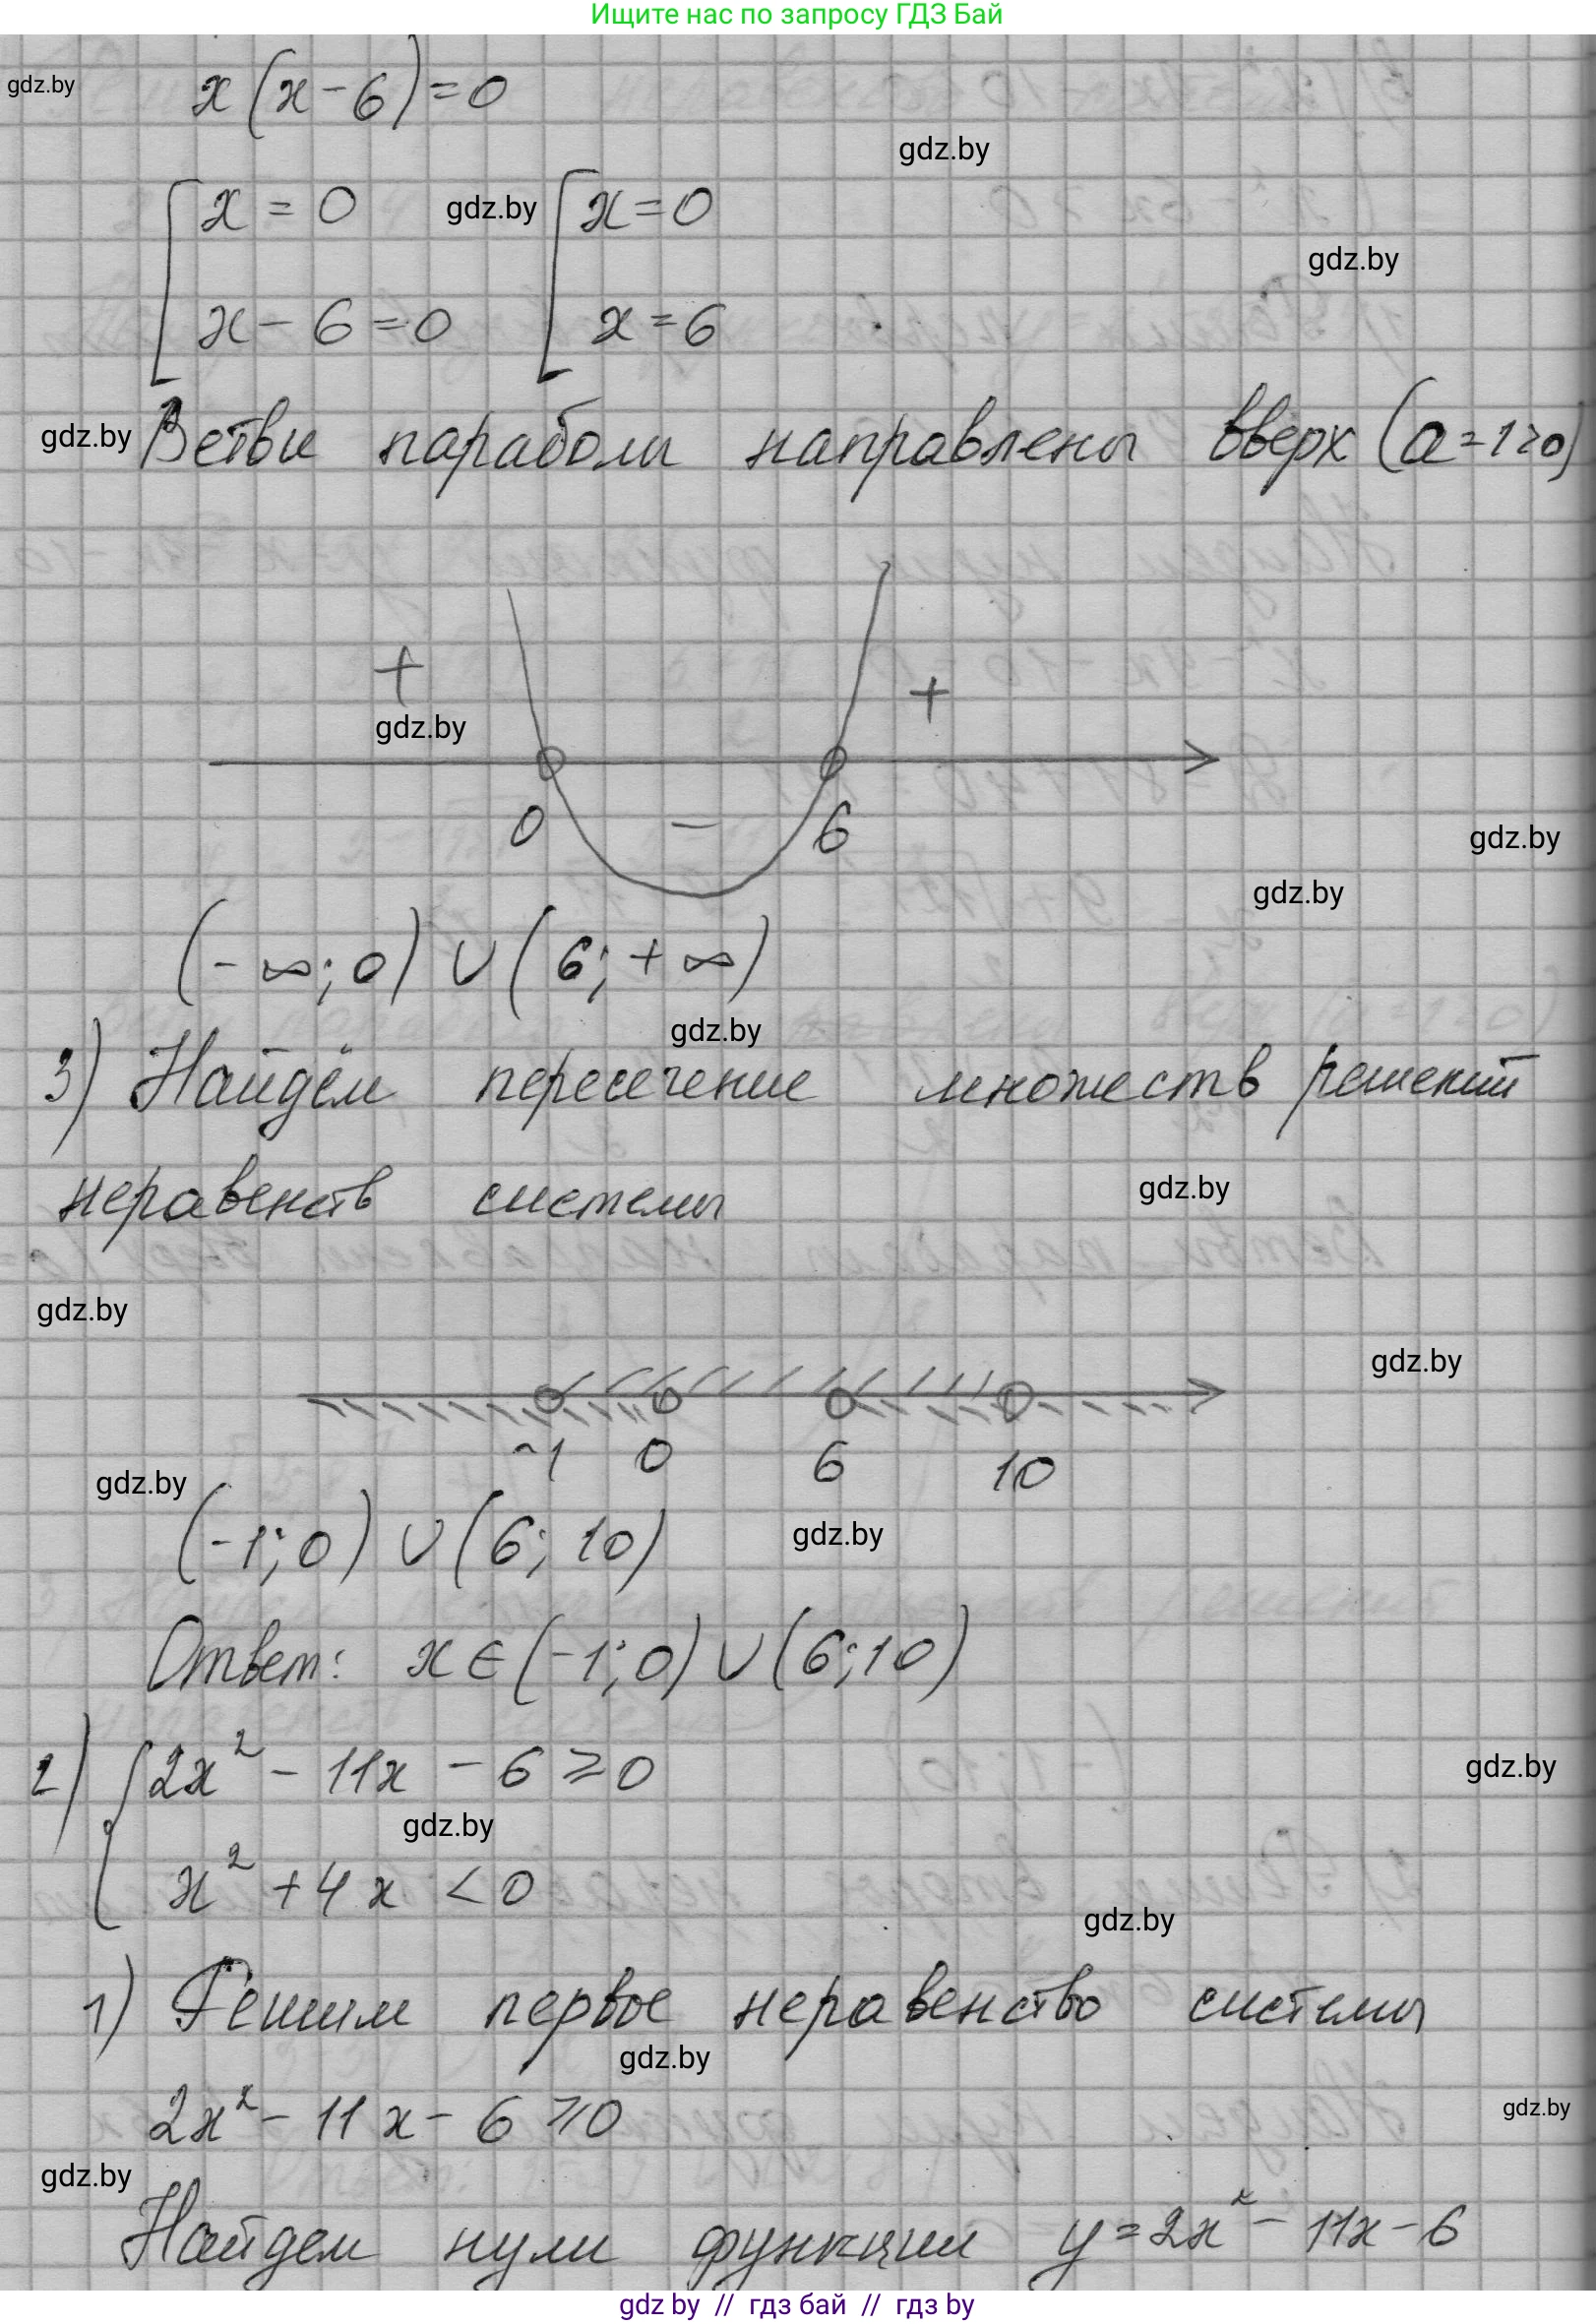 Ищите нас по запросу ГДЗ Бай
gdz.by
x(x-6)=0
gdz.by
x = 0 gdz.by x=0
gdz.by
x - 6 = 0 x = 6
gdz.by Ветви параболы направлены вверх (a=1>0)
+ +
gdz.by
0 - 6
gdz.by
gdz.by
(-∞; 0) ∪ (6; +∞)
gdz.by
3) Найдём пересечение множеств решений
неравенств системы
gdz.by
gdz.by
gdz.by
-1 0 6 10
gdz.by
(-1; 0) ∪ (6; 10)
gdz.by
Ответ: x ∈ (-1; 0) ∪ (6; 10)
2) 2x² - 11x - 6 ≥ 0
gdz.by
gdz.by
x² + 4x < 0
gdz.by
1) Решим первое неравенство системы
gdz.by
2x² - 11x - 6 ≥ 0
gdz.by
gdz.by
Найдем нули функции y = 2x² - 11x - 6
gdz by // гдз бай // gdz by